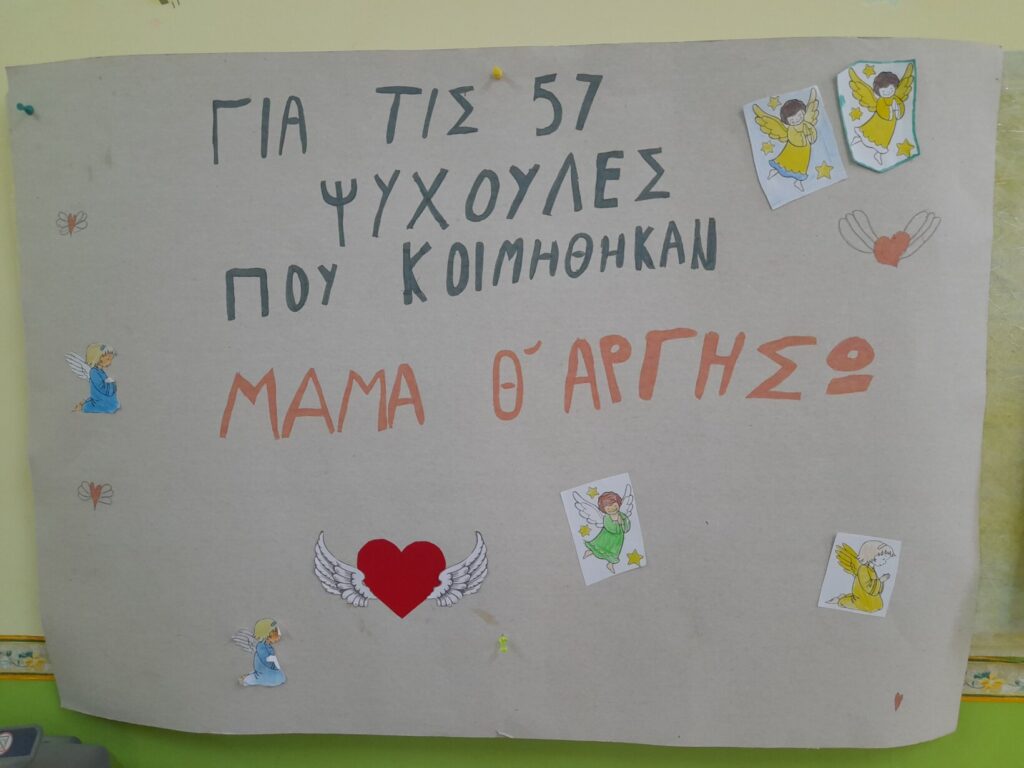 ΓΙΑ ΤΙΣ 57
ΨΥΧΟΥΛΕΣ
ΠΟΥ ΚΟΙΜΗΘΗΚΑΝ
ΜΑΜΑ Θ΄ ΑΡΓΗΣΩ